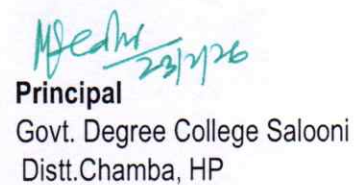 23/2/26
Principal
Govt. Degree College Salooni
Distt.Chamba, HP